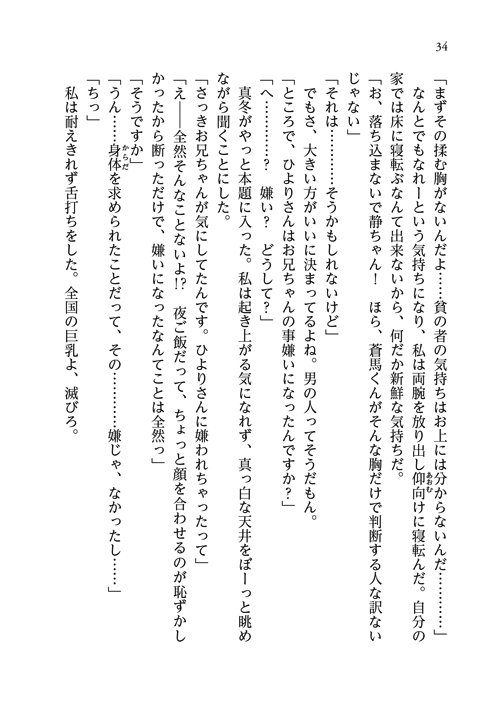 34
「まずその揉む胸がないんだよ……貧の者の気持ちはお上には分からないんだ…………」
なんとでもなれーという気持ちになり、私は両腕を放り出し仰向けに寝転んだ。自分の
家では床に寝転ぶなんて出来ないから、何だか新鮮な気持ちだ。
「お、落ち込まないで静ちゃん！　ほら、蒼馬くんがそんな胸だけで判断する人な訳ない
じゃない」
「それは…………そうかもしれないけど」
でもさ、大きい方がいいに決まってるよね。男の人ってそうだもん。
「ところで、ひよりさんはお兄ちゃんの事嫌いになったんですか？」
「へ…………？　嫌い？　どうして？」
真冬がやっと本題に入った。私は起き上がる気になれず、真っ白な天井をぼーっと眺め
ながら聞くことにした。
「さっきお兄ちゃんが気にしてたんです。ひよりさんに嫌われちゃったって」
「え――全然そんなことないよ!?　夜ご飯だって、ちょっと顔を合わせるのが恥ずかし
かったから断っただけで、嫌いになったなんてことは全然っ」
「そうですか」
「うん……身体を求められたことだって、その…………嫌じゃ、なかったし……」
「ちっ」
私は耐えきれず舌打ちをした。全国の巨乳よ、滅びろ。